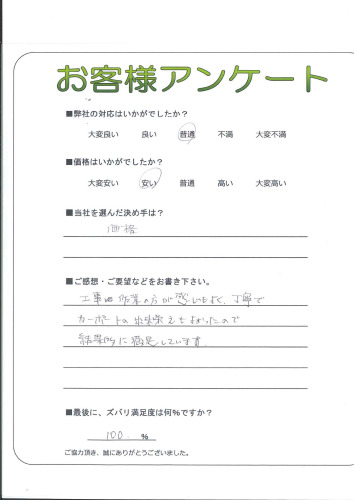 お客様アンケート
■弊社の対応はいかがでしたか？
大変良い 良い 普通 不満 大変不満
■価格はいかがでしたか？
大変安い 安い 普通 高い 大変高い
■当社を選んだ決め手は？
価格
■ご感想・ご要望などをお書き下さい。
工事も作業の方が感じもよく、丁寧で
カーポートの出来栄えもよかったので
結果的に満足しています
■最後に、ズバリ満足度は何％ですか？
100 ％
ご協力頂き、誠にありがとうございました。